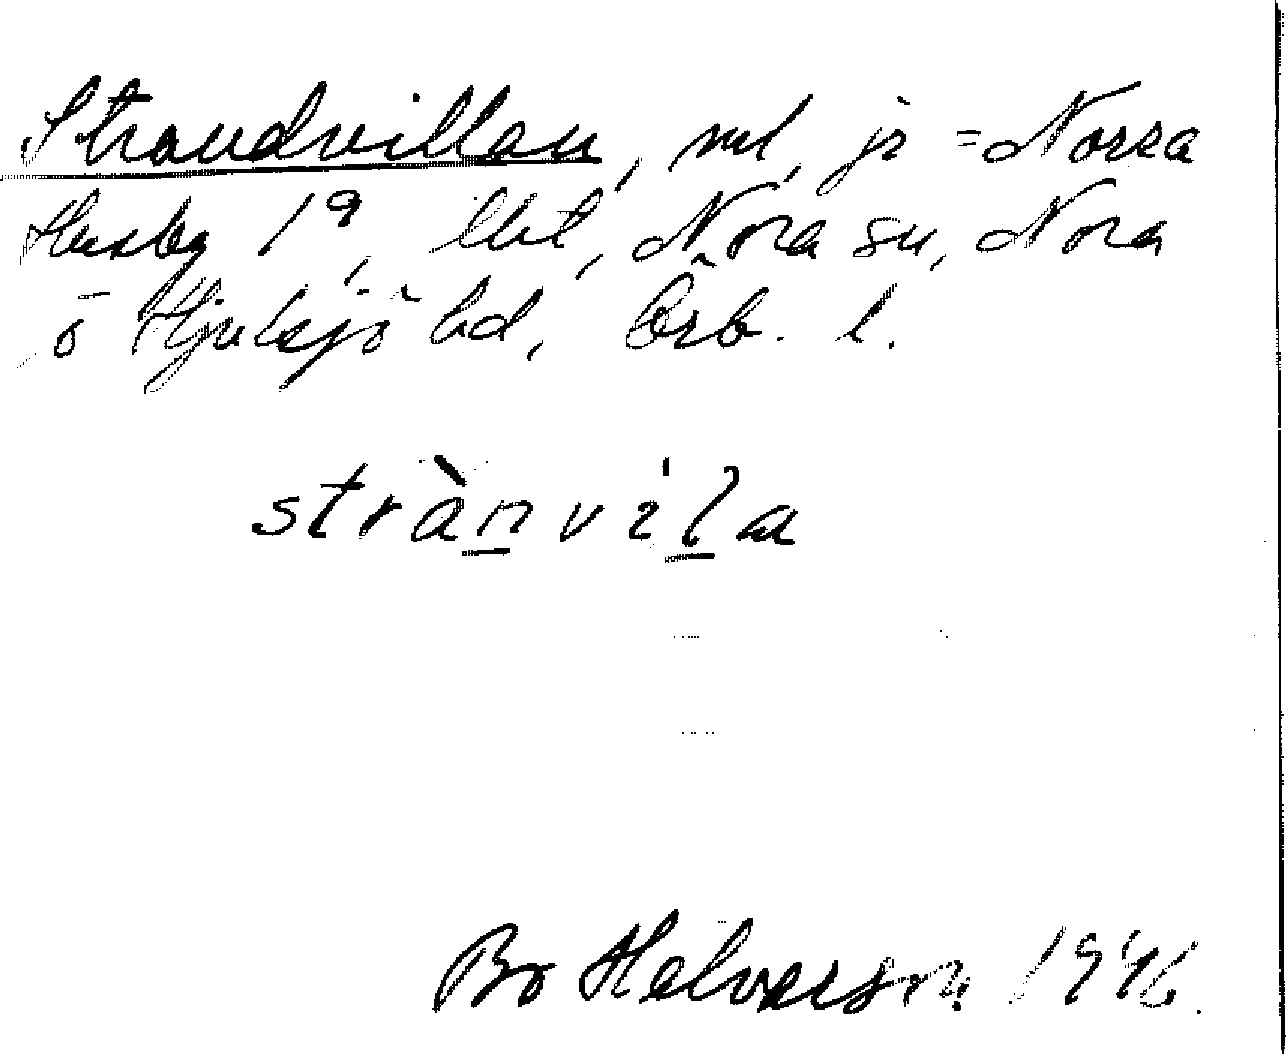 Strandvillan, nml, jr = Norra
Husby 1⁹, lht, Nora sn, Nora
o Hjulsjö hd, Örb. l.
strànvi̍la
Bo Halvarson 1946.